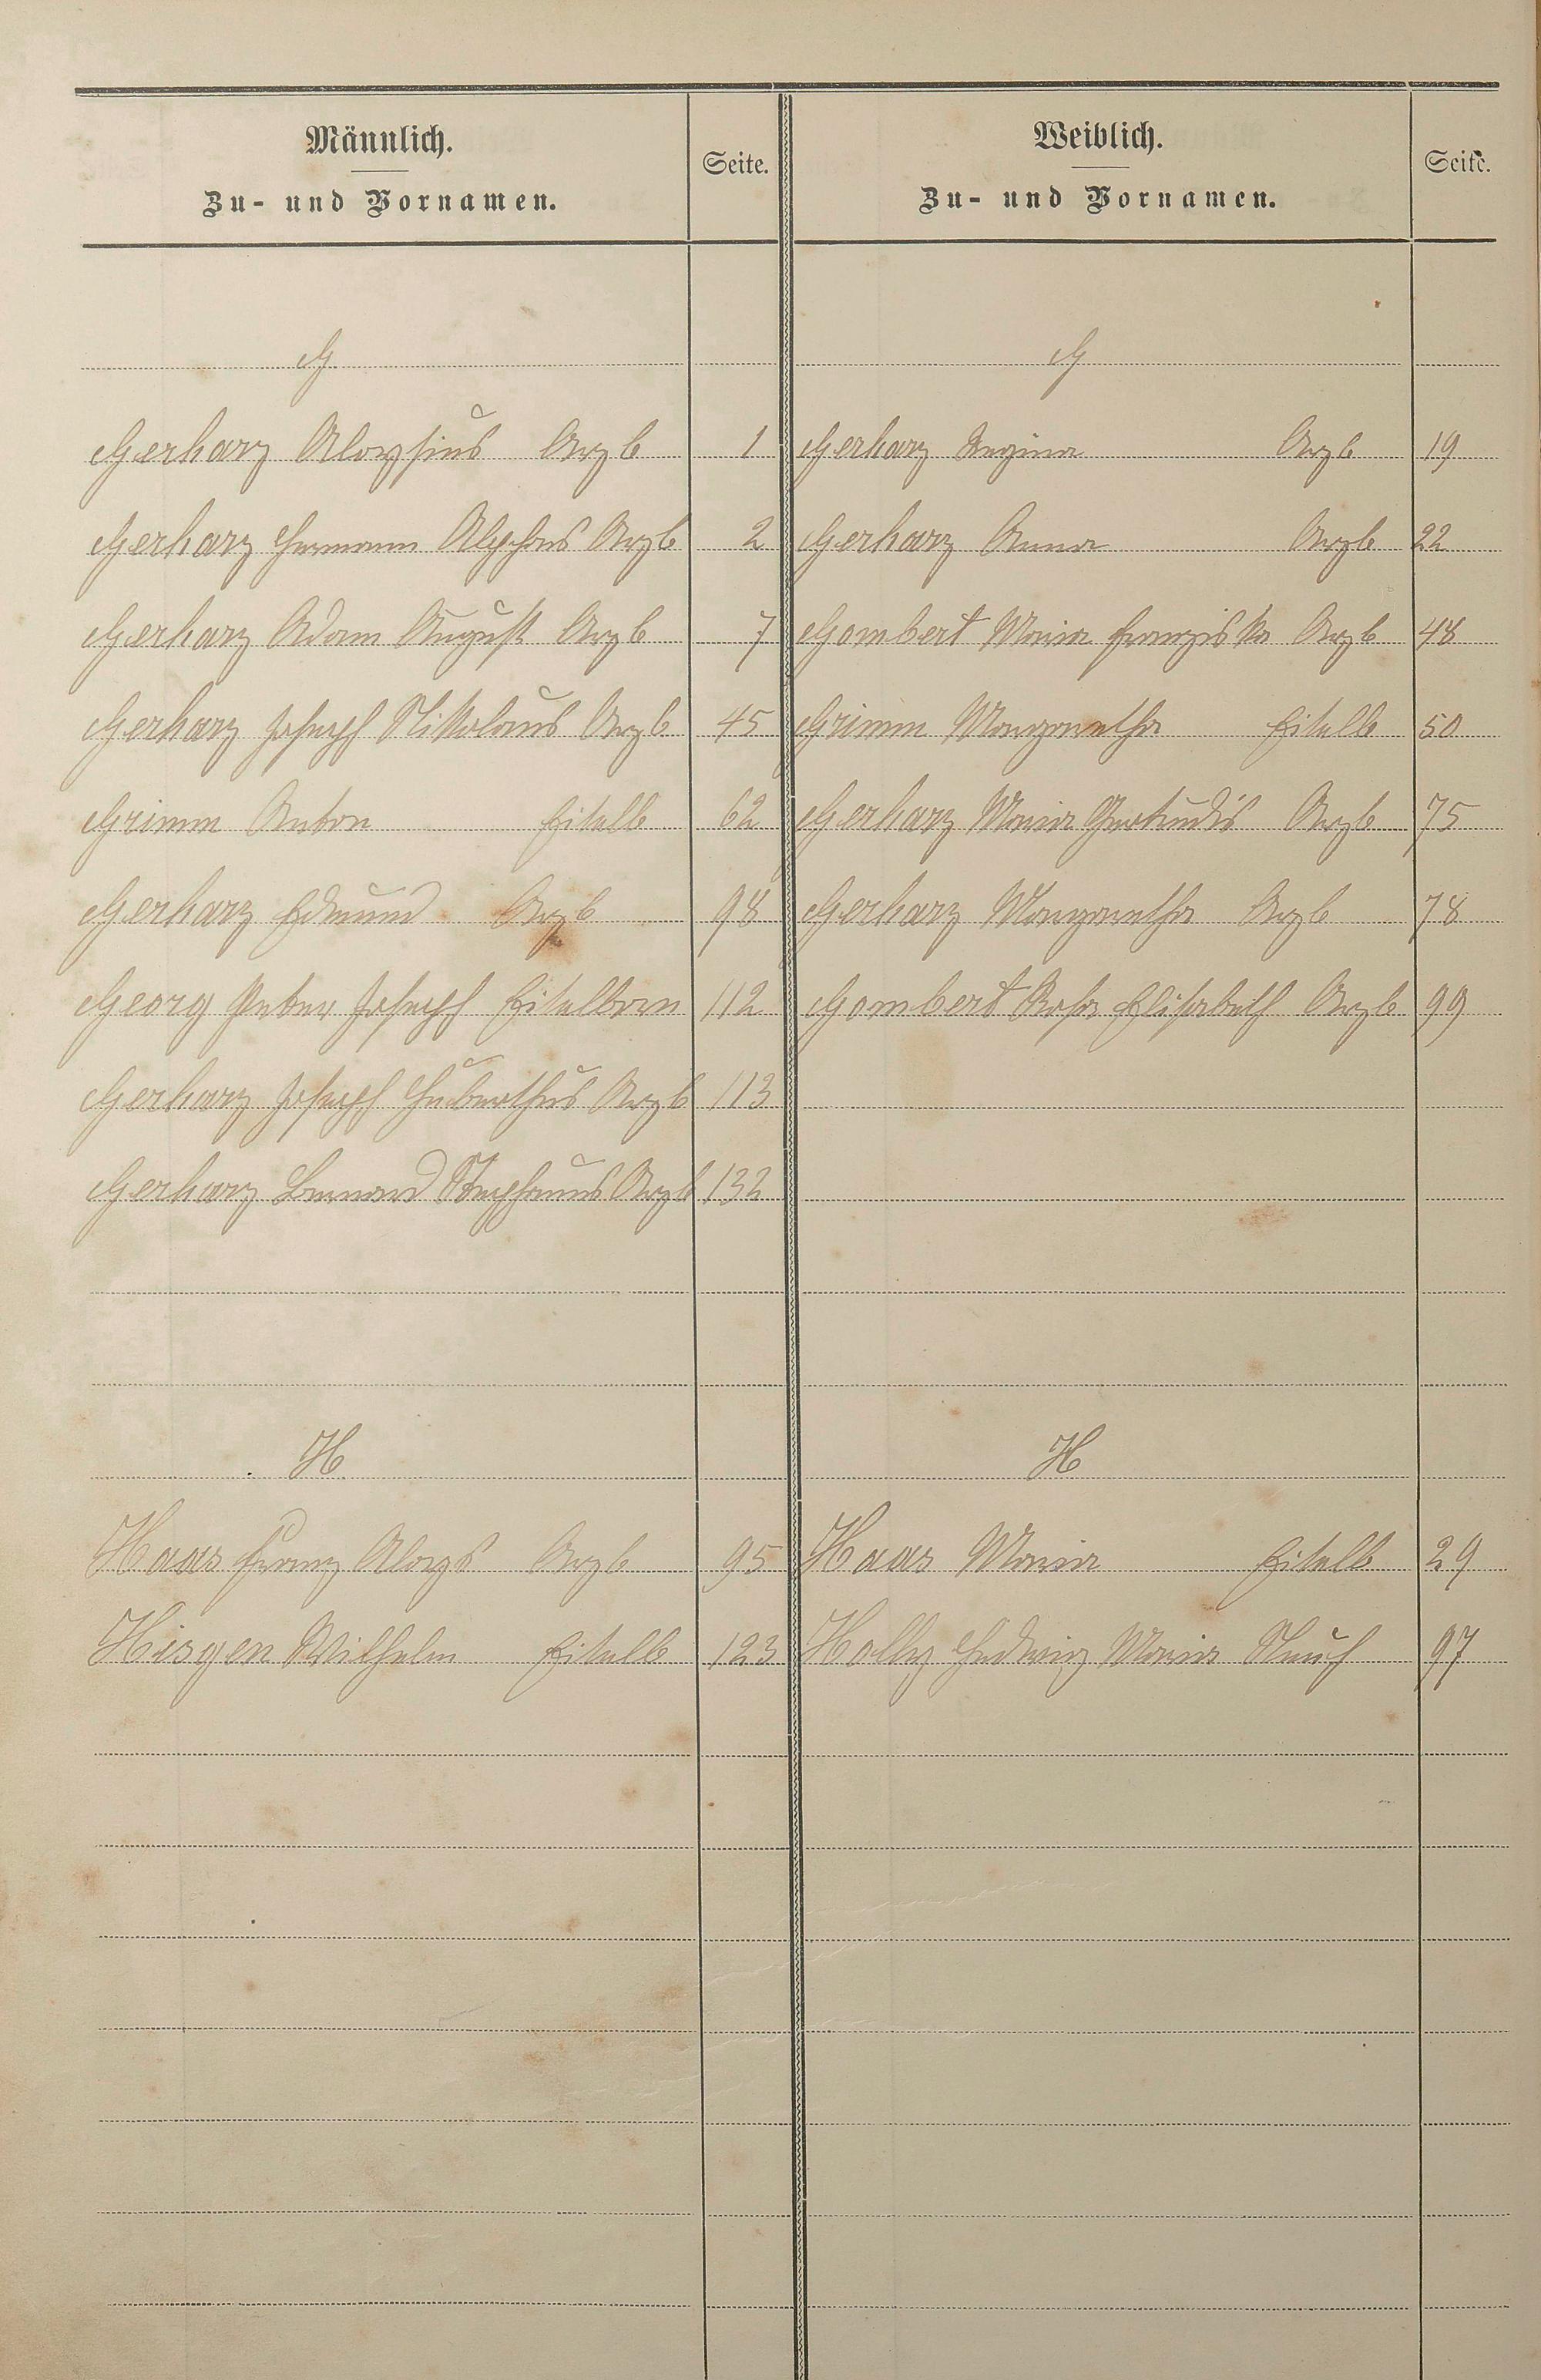 Männlich.
Zu- und Vornamen.
Seite.
Weiblich.
Zu- und Vornamen.
Seite.
G
G
Gerharz Aloysius Arzb 1
Gerharz Regina Arzb 19
Gerharz Hermann Alphons Arzb 2
Gerharz Anna Arzb 22
Gerharz Adam August Arzb 7
Gombert Maria Franziska Arzb 48
Gerharz Joseph Nikolaus Arzb 45
Grimm Margaretha Eitelb 50
Grimm Anton Eitelb 62
Gerharz Maria Gertrudis Arzb 75
Gerharz Edmund Arzb 98
Gerharz Margaretha Arzb 78
Georg Peter Joseph Eitelborn 112
Gombert Rosa Elisabeth Arzb 99
Gerharz Joseph Hubertus Arzb 113
Gerharz Bernard Stephanus Arzb 132
H
H
Haas Franz Aloys Arzb 95
Haas Maria Eitelb 29
Hisgen Wilhelm Eitelb 123
Holly Hedwig Maria 97